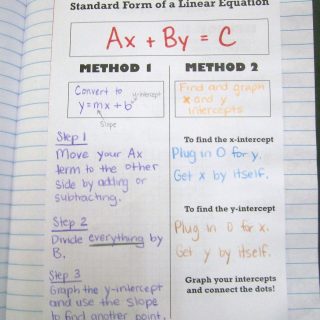 Standard Form of a Linear Equation
Ax + By = C
METHOD 1
Convert to
y=mx+b
y-intercept
Slope
Step 1
Move your Ax
term to the other
side by adding or
subtracting.
Step 2
Divide everything by
B.
Step 3
Graph the y-intercept
and use the slope
to find another point.
METHOD 2
Find and graph
x and y
intercepts
To find the x-intercept
Plug in 0 for y.
Get x by itself.
To find the y-intercept
Plug in 0 for x.
Get y by itself.
Graph your intercepts
and connect the dots!